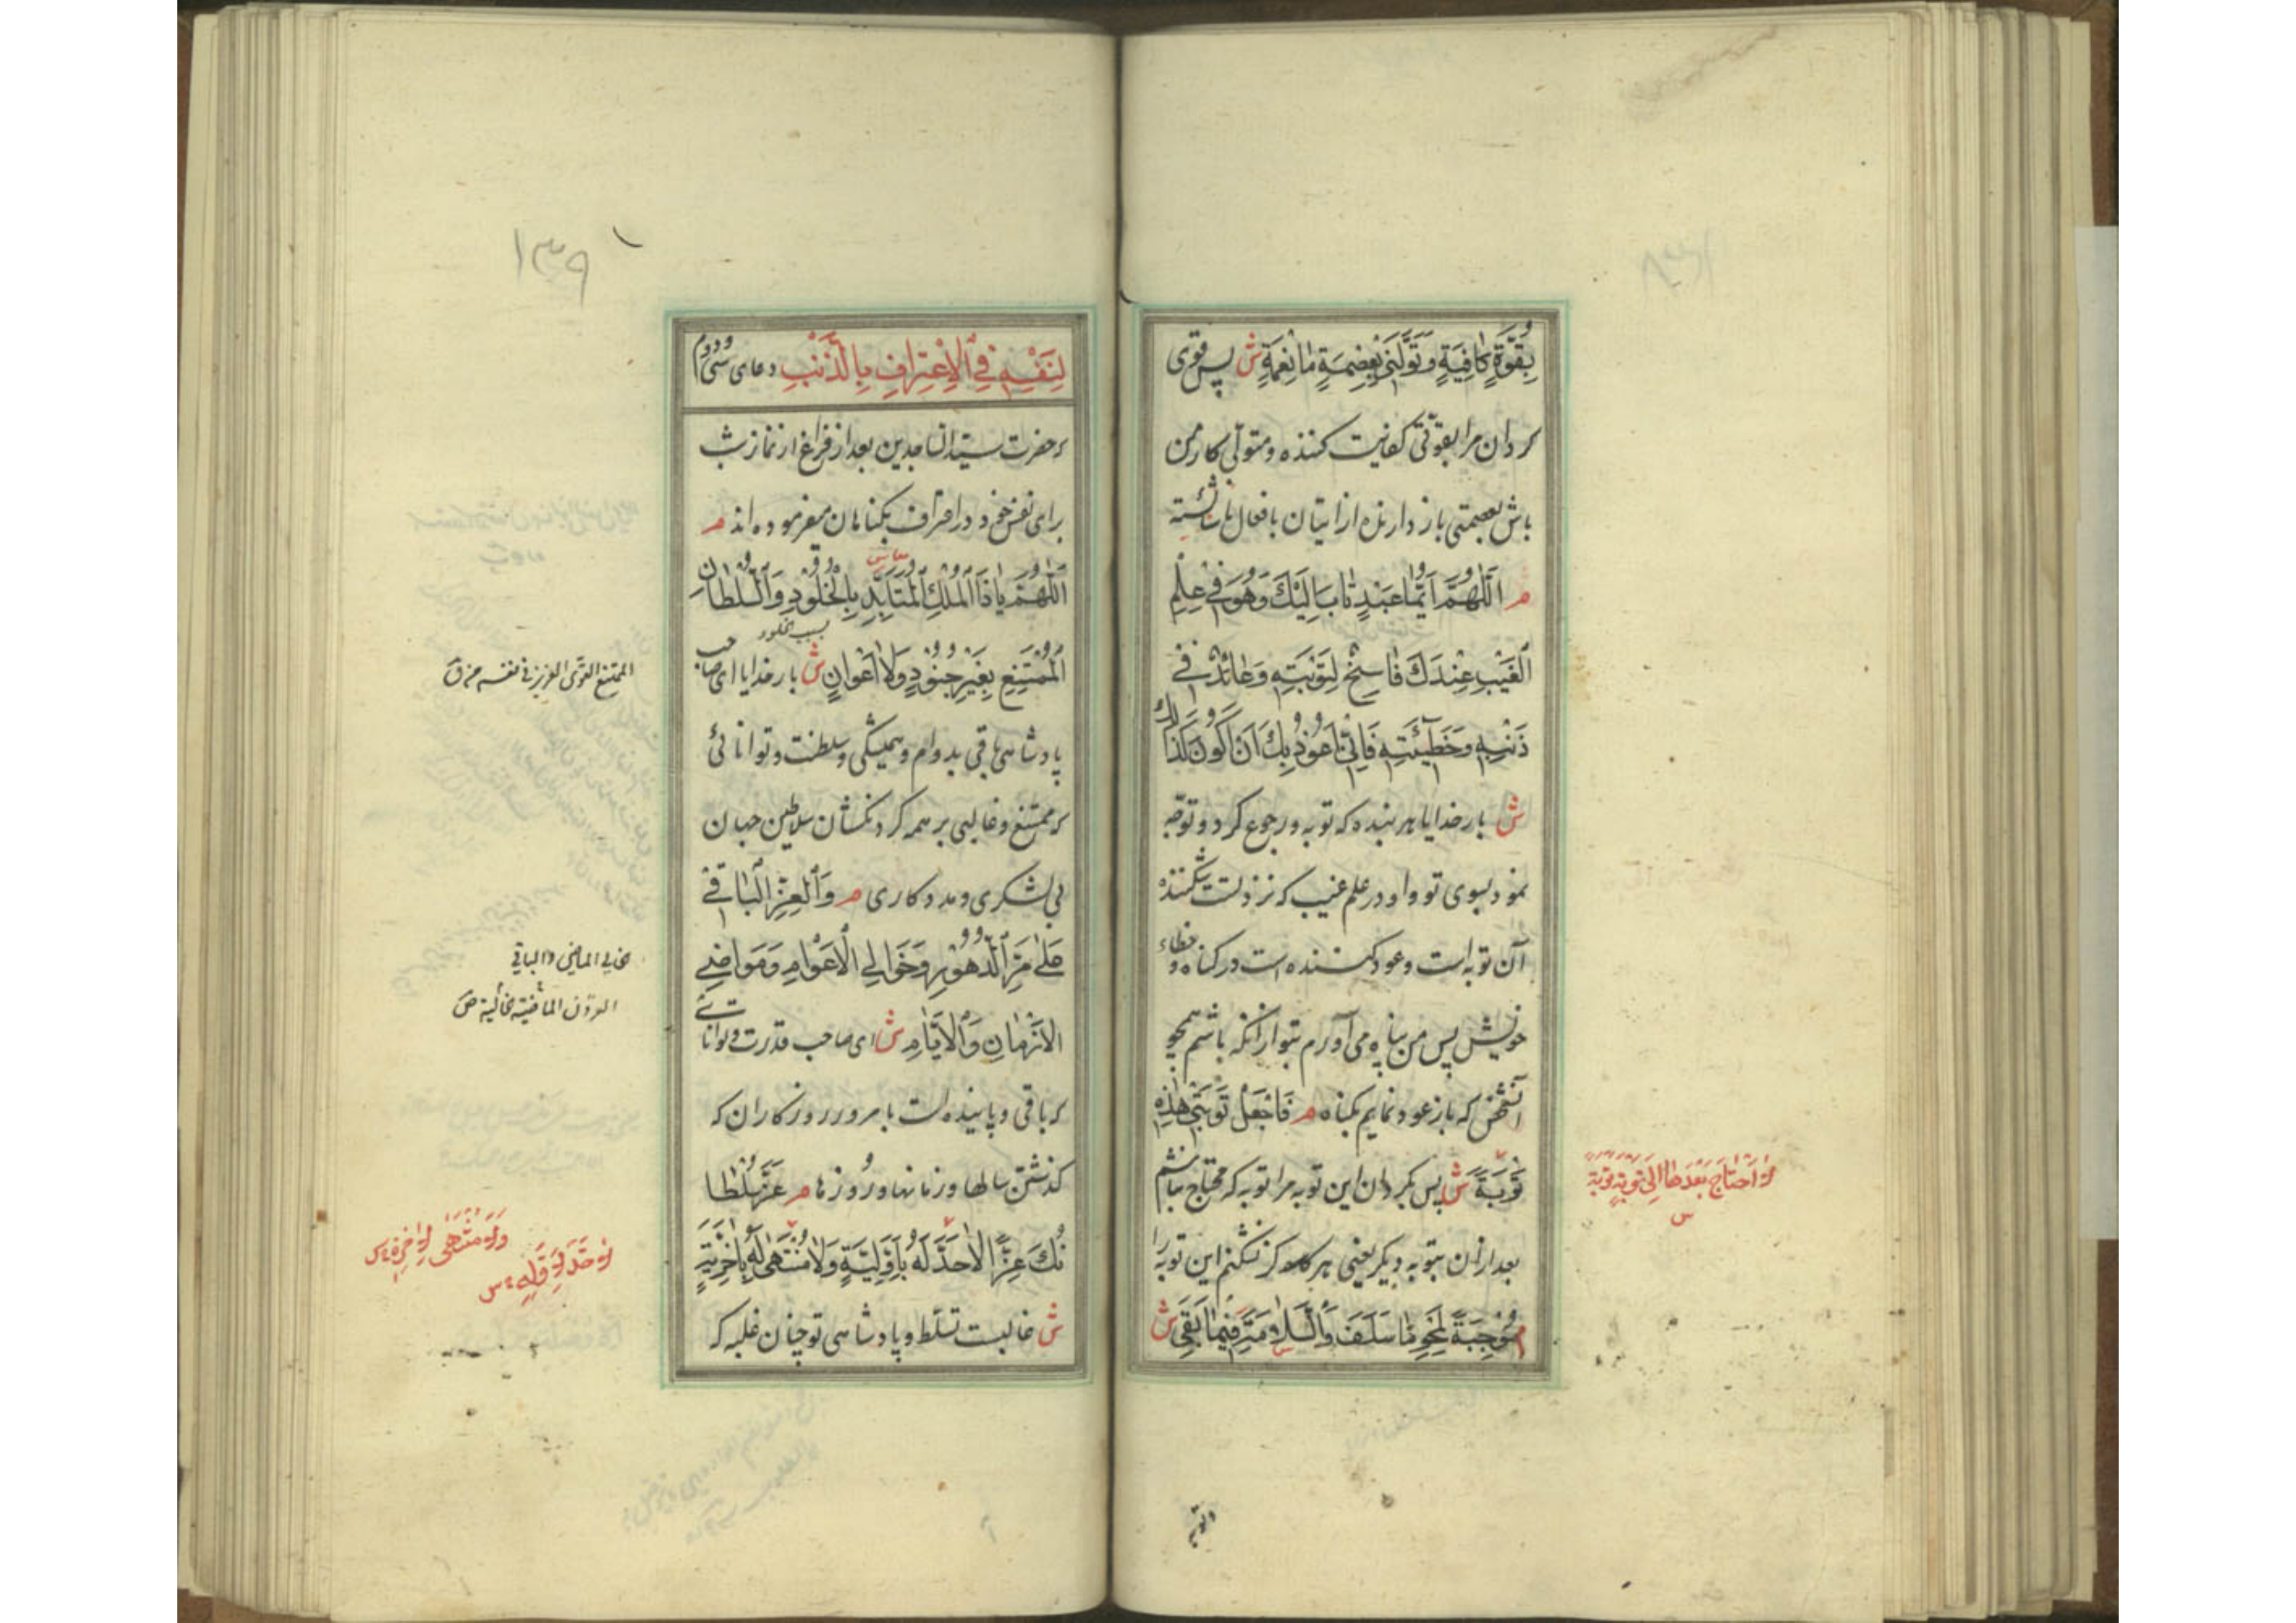 بِقُوَّةٍ كَافِيَةٍ وَتَوَلَّنِي بِعِصْمَةٍ مَانِعَةٍ ش پس قوی
کردان مرا بقوّتی کفایت کننده و متولّی کار من
باش بعصمتی باز دارنده از اتیان بافعال ناشائسته
م اَللّٰهُمَّ اَيُّمَا عَبْدٍ تَابَ اِلَيْكَ وَهُوَ فِي عِلْمِ
الْغَيْبِ عِنْدَكَ فَاسِخٌ لِتَوْبَتِهِ وَعَائِدٌ فِي
ذَنْبِهِ وَخَطِيْئَتِهِ فَاِنِّي اَعُوذُ بِكَ اَنْ اَكُونَ كَذَلِكَ
ش بار خدایا هر بنده که توبه و رجوع کرد و توجّه
نمود بسوی تو و او در علم غیب که نزد تست شکننده
آن توبه است و عود کننده است در کناه و خطاء
خویش پس من پناه می آورم بتو از آنکه باشم همچو
آنشخص که باز عود نمایم بکناه م فَاجْعَلْ تَوْبَتِي هٰذِهِ
تَوْبَةً ش پس بکردان این توبه مرا توبه که محتاج نباشم
بعد از ان بتوبه دیکر یعنی هرکز نشکنم این توبه را
م مُوجِبَةً لِمَحْوِ مَا سَلَفَ وَالسَّلَامَةِ فِيمَا بَقِيَ ش
لا احتاج بَعْدَهَا اِلَى تَوْبَةٍ تَوْبَة
س
وتوبه
۱۳۹
لِنَفْسِهِ فِي الْاِعْتِرَافِ بِالذَّنْبِ دعای سی و دوم
که حضرت سیّد الساجدین بعد از فراغ از نماز شب
برای نفس خود در اعتراف بکناهان میفرموده اند م
اَللّٰهُمَّ يَا ذَا الْمُلْكِ الْمُتَأَبِّدِ بِالْخُلُودِ وَالسُّلْطَانِ
بسبب خلود
الْمُمْتَنِعِ بِغَيْرِ جُنُودٍ وَلَا اَعْوَانٍ ش بار خدایا ای صاحب
پادشاهی باقی بدوام و همیشکی و سلطنت و توانائی
که ممتنع و غالبی بر همه کردنکشان سلاطین جهان
بی لشکری و مددکاری م وَالْعِزِّ الْبَاقِي
عَلَى مَرِّ الدُّهُورِ وَخَوَالِي الْاَعْوَامِ وَمَوَاضِي
الْاَزْمَانِ وَالْاَيَّامِ ش ای صاحب قدرت و توانائی
که باقی و پاینده است با مرور روزکاران که
کذشتن سالها و زمانها و روزها م عَزَّ سُلْطَا
نُكَ عِزًّا لَا حَدَّ لَهُ بِاَوَّلِيَّةٍ وَلَا مُنْتَهَى لَهُ بِاٰخِرِيَّةٍ
ش غالبست تسلّط و پادشاهی تو چنان غلبه که
الممتنع القوی العزیز فی نفسه
الماضی والباقی
القرون الماضیة
لا حَدَّ لِاَوَّلِهِ س
وَلا مُنْتَهَى لِاٰخِرِهِ س